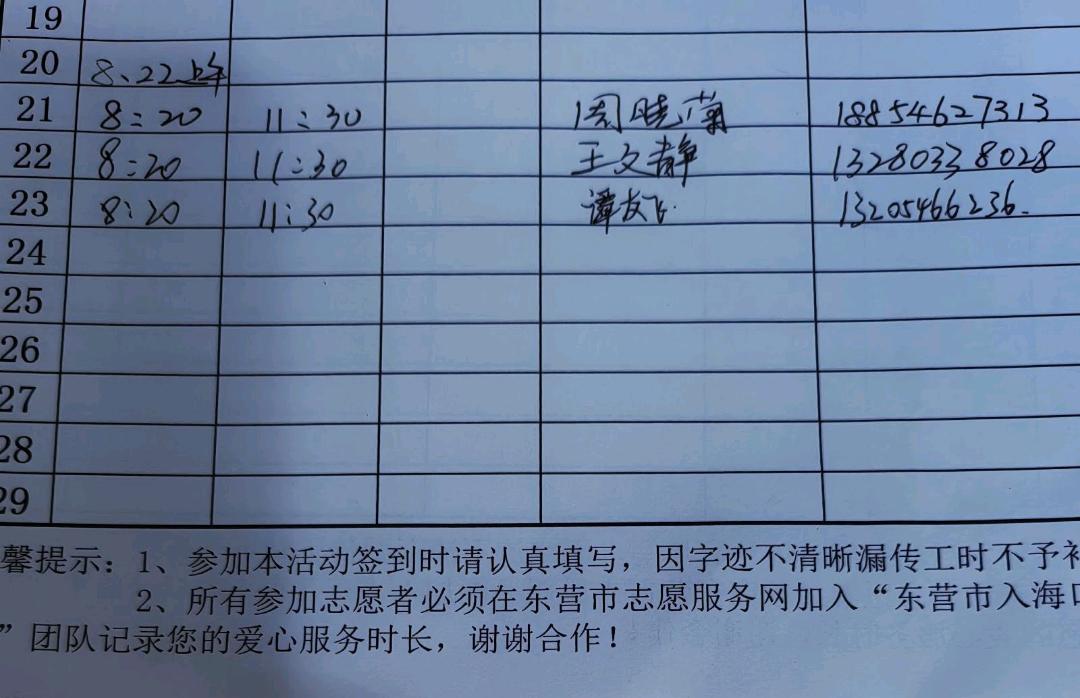 19
20 8、22上午
21 8:20 11:30 周晓菊 18854627313
22 8:20 11:30 王文静 13280338028
23 8:20 11:30 谭友飞 13205466236.
24
25
26
27
28
29
馨提示：1、参加本活动签到时请认真填写，因字迹不清晰漏传工时不予补
2、所有参加志愿者必须在东营市志愿服务网加入“东营市入海口
”团队记录您的爱心服务时长，谢谢合作！